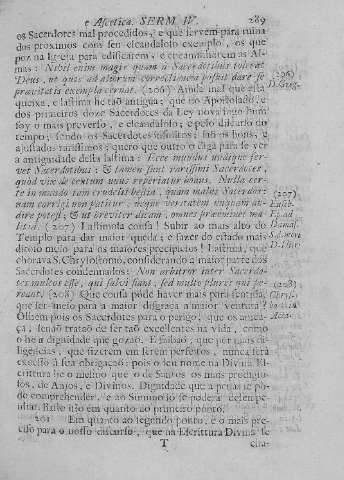 e Ascetica. SERM. IV. 289
os Sacerdotes mal procedidos, e que servem para ruina
dos proximos com seu escandaloso exemplo, os que
por na Igreja para edificarem, e encaminharem as Al-
mas: Nihil enim magis quam à Sacerdotibus tolerat
Deus, ut quos ad aliorum correctionem posuit dare se
pravitatis exempla cernat. (206) Ainda mal que esta
queixa, e lastima he taõ antiga; que no Apostolado, e
dos primeiros doze Sacerdotes da Ley nova logo hum
foy o mais preverso, e escandaloso; e pelo discurso do
tempo, sendo os Sacerdotes infinitos, saõ os bons, e
ajustados rarissimos; quero que outro o diga para se ver
a antiguidade desta lastima: Ecce mundus undique fer-
vet Sacerdotibus: & tamen sunt rarissimi Sacerdotes,
quod vix de centum unus reperiatur bonus. Nulla cer-
te in mundo tam crudelis bestia, quam malus Sacerdos:
nam corrigi non patitur, neque veritatem unquam au-
dire potest; & ut breviter dicam, omnes præeminet ma-
litia. (207) Lastimosa cousa! Subir ao mais alto do
Templo para dar maior queda; e fazer do estado mais
ditoso meio para os maiores precipicios! Lastima, que
chorava S. Chrysostomo, considerando a maior parte dos
Sacerdotes condemnados: Non arbitror inter Sacerdo-
tes multos esse, qui salvi fiant, sed multo plures qui pe-
reant. (208) Que cousa póde haver mais para sentida,
que ser meio para a maior disgraça a maior ventura?
Olhem pois os Sacerdotes para o perigo, que os amea-
ça, senaõ trataõ de ser taõ excellentes na vida, como
o he a dignidade que gozaõ. E saibaõ, que por mais di-
ligencias, que fizerem em serem perfeitos, nunca será
excesso á sua obrigaçaõ; pois o seu nome na Divina Es-
critura he o mesmo que o de Santos os mais prodigio-
sos, de Anjos, e Divinos. Dignidade que a penas se pó-
de comprehender, e ao Summo só se poderá desempe-
nhar. Basto isto em quanto ao primeiro ponto.
201 Em quanto ao segundo ponto, e o mais pre-
ciso para o nosso discurso, que na Escrittura Divina se
T
(206)
D. Greg.
(207)
(208)